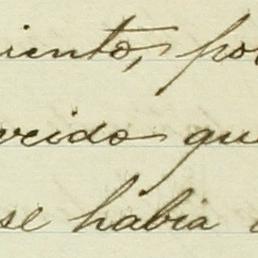 iento, por
reido que
se habia